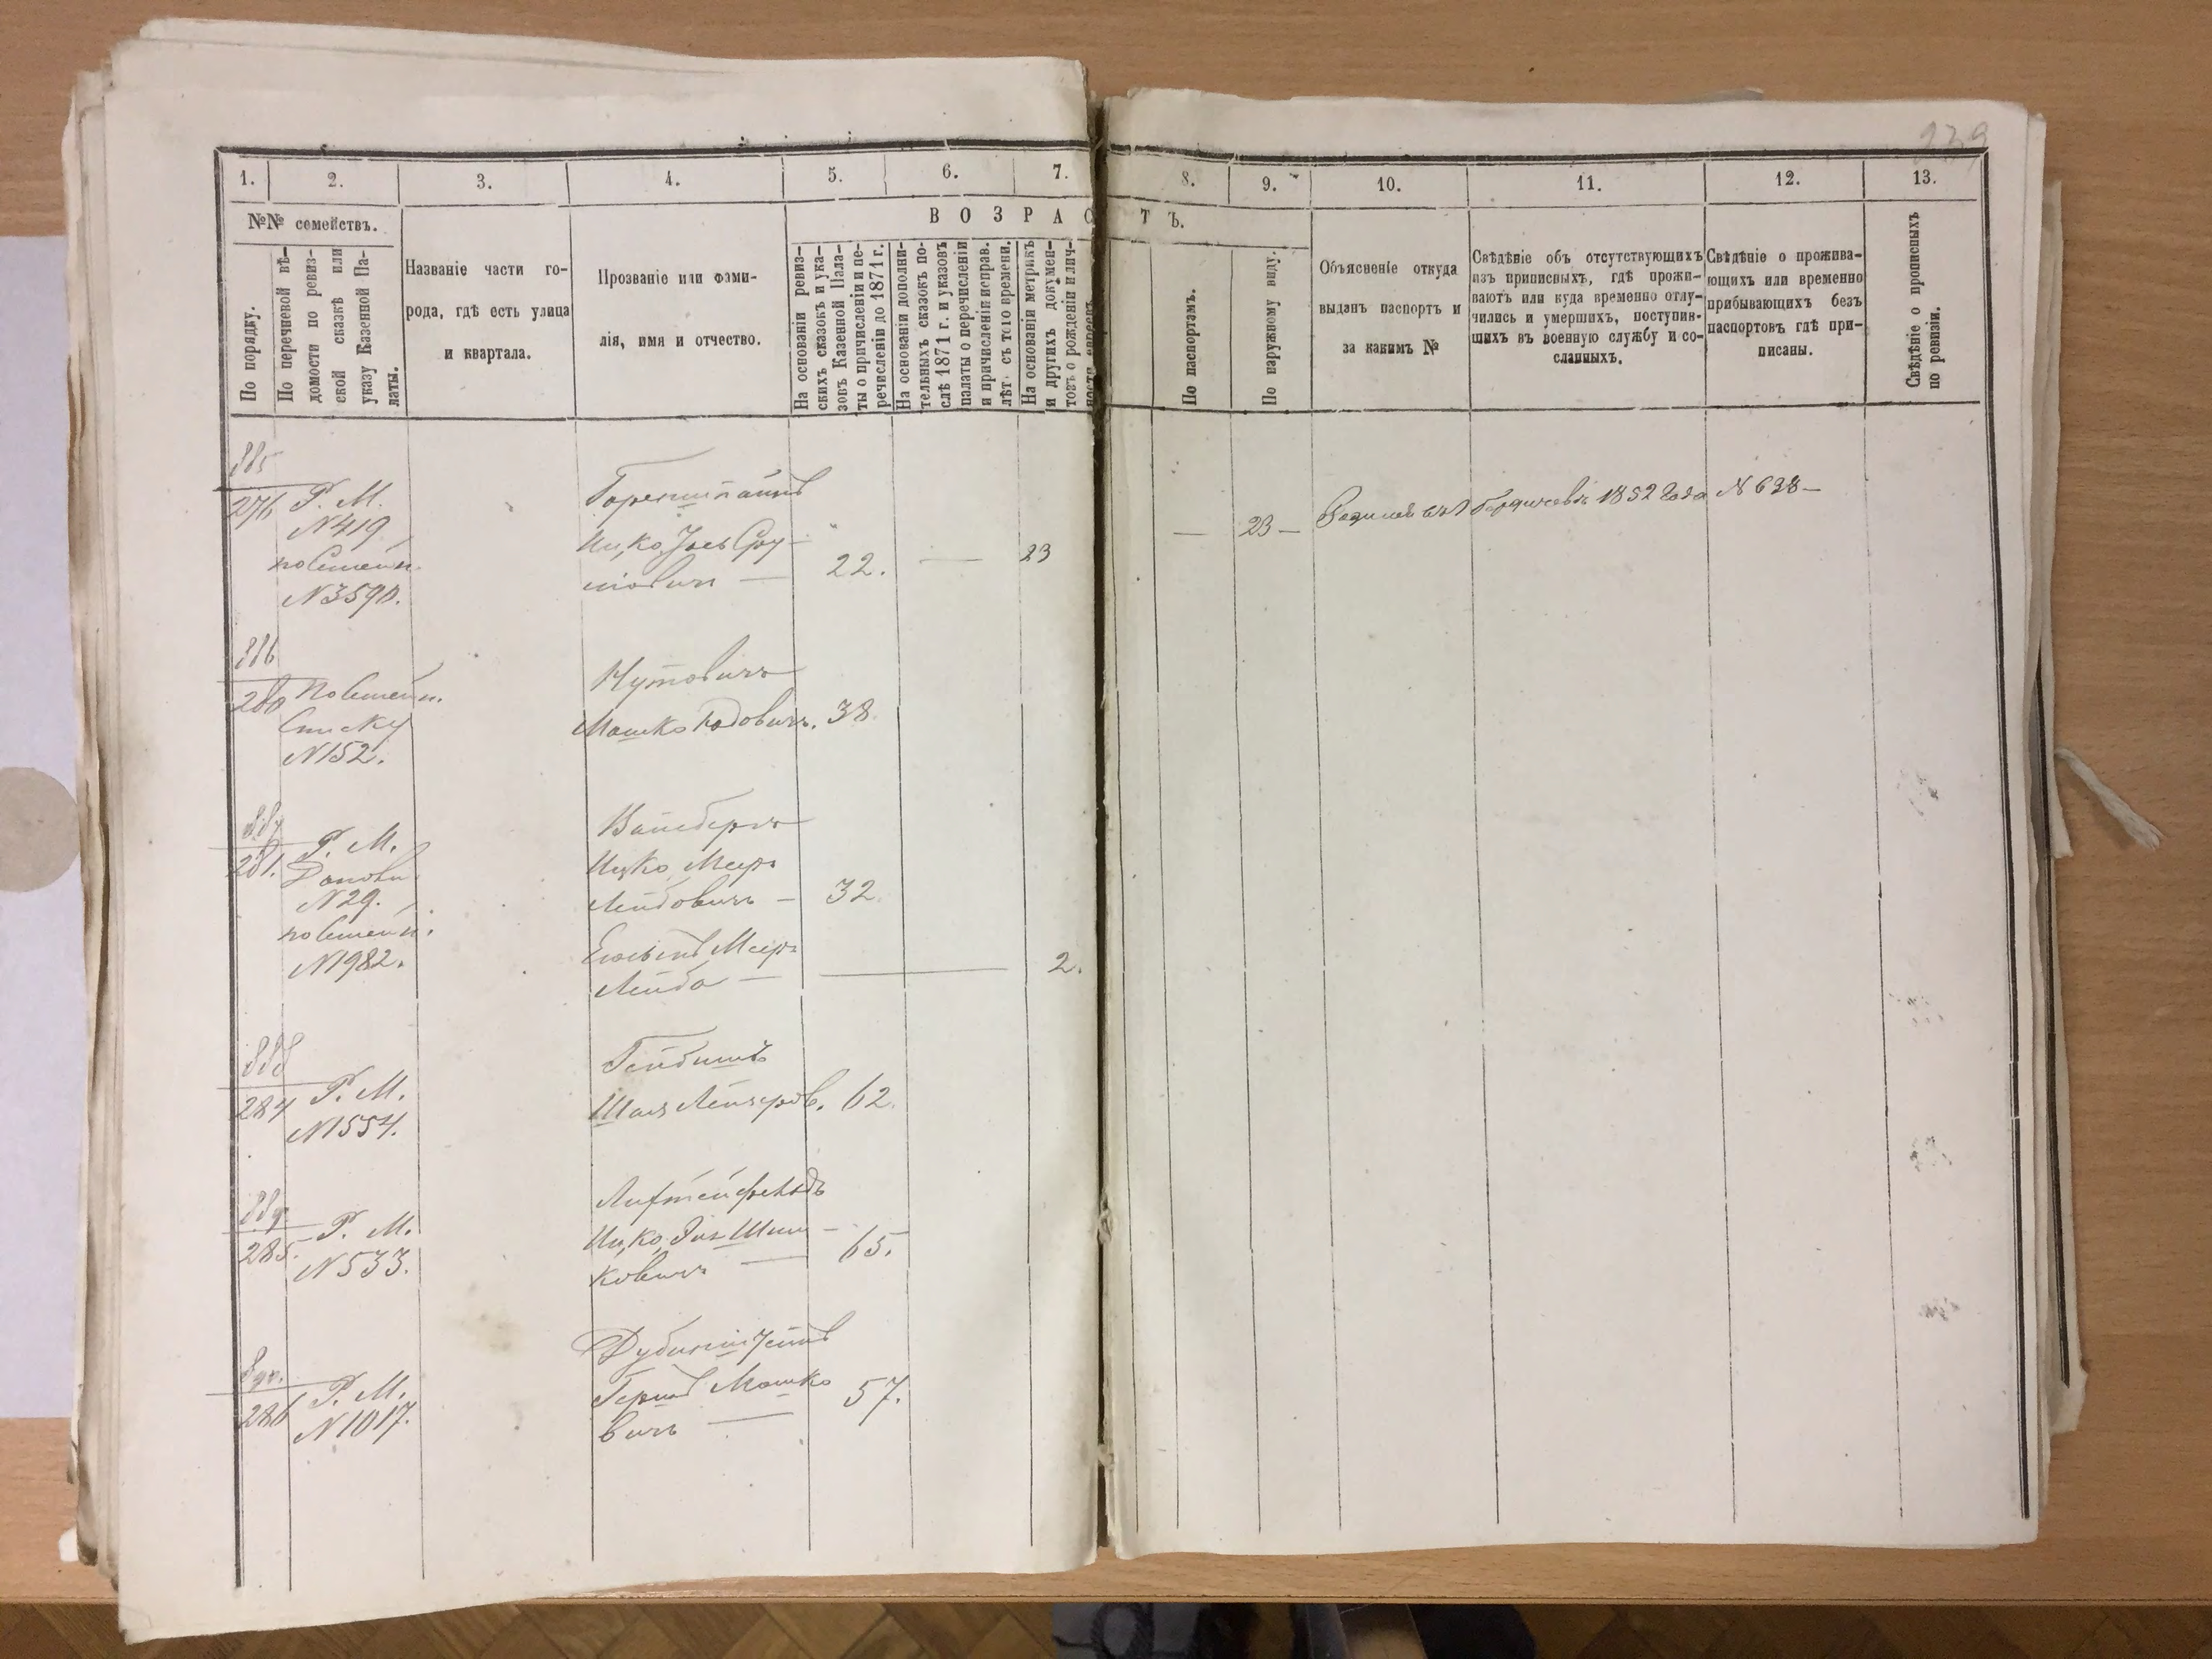 239
1.
2.
3.
4.
5.
6.
7.
8.
9.
10.
11.
12.
13.
№№ семействъ.
По порядку.
По перечневой вѣ-
домости по ревиз-
ской сказкѣ или
указу Казенной Па-
латы.
Названіе части го-
рода, гдѣ есть улица
и квартала.
Прозваніе или фами-
лія, имя и отчество.
ВОЗРАС
ТЪ.
На основаніи ревиз-
скихъ сказокъ и ука-
зовъ Казенной Пала-
ты о причисленіи и пе-
речисленіи до 1871 г.
На основаніи дополни-
тельныхъ сказокъ по-
слѣ 1871 г. и указовъ
палаты о перечисленіи
и причисленіи исправ.
лѣт. съ того времени.
На основаніи метрикъ
и другихъ докумен-
товъ о рожденіи и лич-
ности евреевъ
По паспортамъ.
По наружному виду.
Объясненіе откуда
выданъ паспортъ и
за какимъ №
Свѣдѣніе объ отсутствующихъ
изъ приписныхъ, гдѣ прожи-
ваютъ или куда временно отлу-
чились и умершихъ, поступив-
шихъ въ военную службу и со-
сланныхъ.
Свѣдѣніе о прожива-
ющихъ или временно
прибывающихъ безъ
паспортовъ гдѣ при-
писаны.
Свѣдѣніе о прописныхъ
по ревизіи.
885
276 Р. М.
N 419
N 3590.
Ицко
22. — 23
— 23 —
Бердичевѣ 1852 года N 638 —
886
280
Списку
N 152.
Нутовичъ
Мошко Юдовичъ. 38.
887
281. Р. М.
N 29.
N 1982.
Вайсбергъ
Ицко Меер
Лейбовичъ — 32.
Меер
Лейба — 2.
888
284 Р. М.
N 1554.
62.
889
285. Р. М.
N 533.
Лихтенфельдъ
Ицко Шим-
ковичъ — 65.
890.
286 Р. М.
N 1017.
Рубинштейнъ
Гершъ Мошко
вичъ — 57.